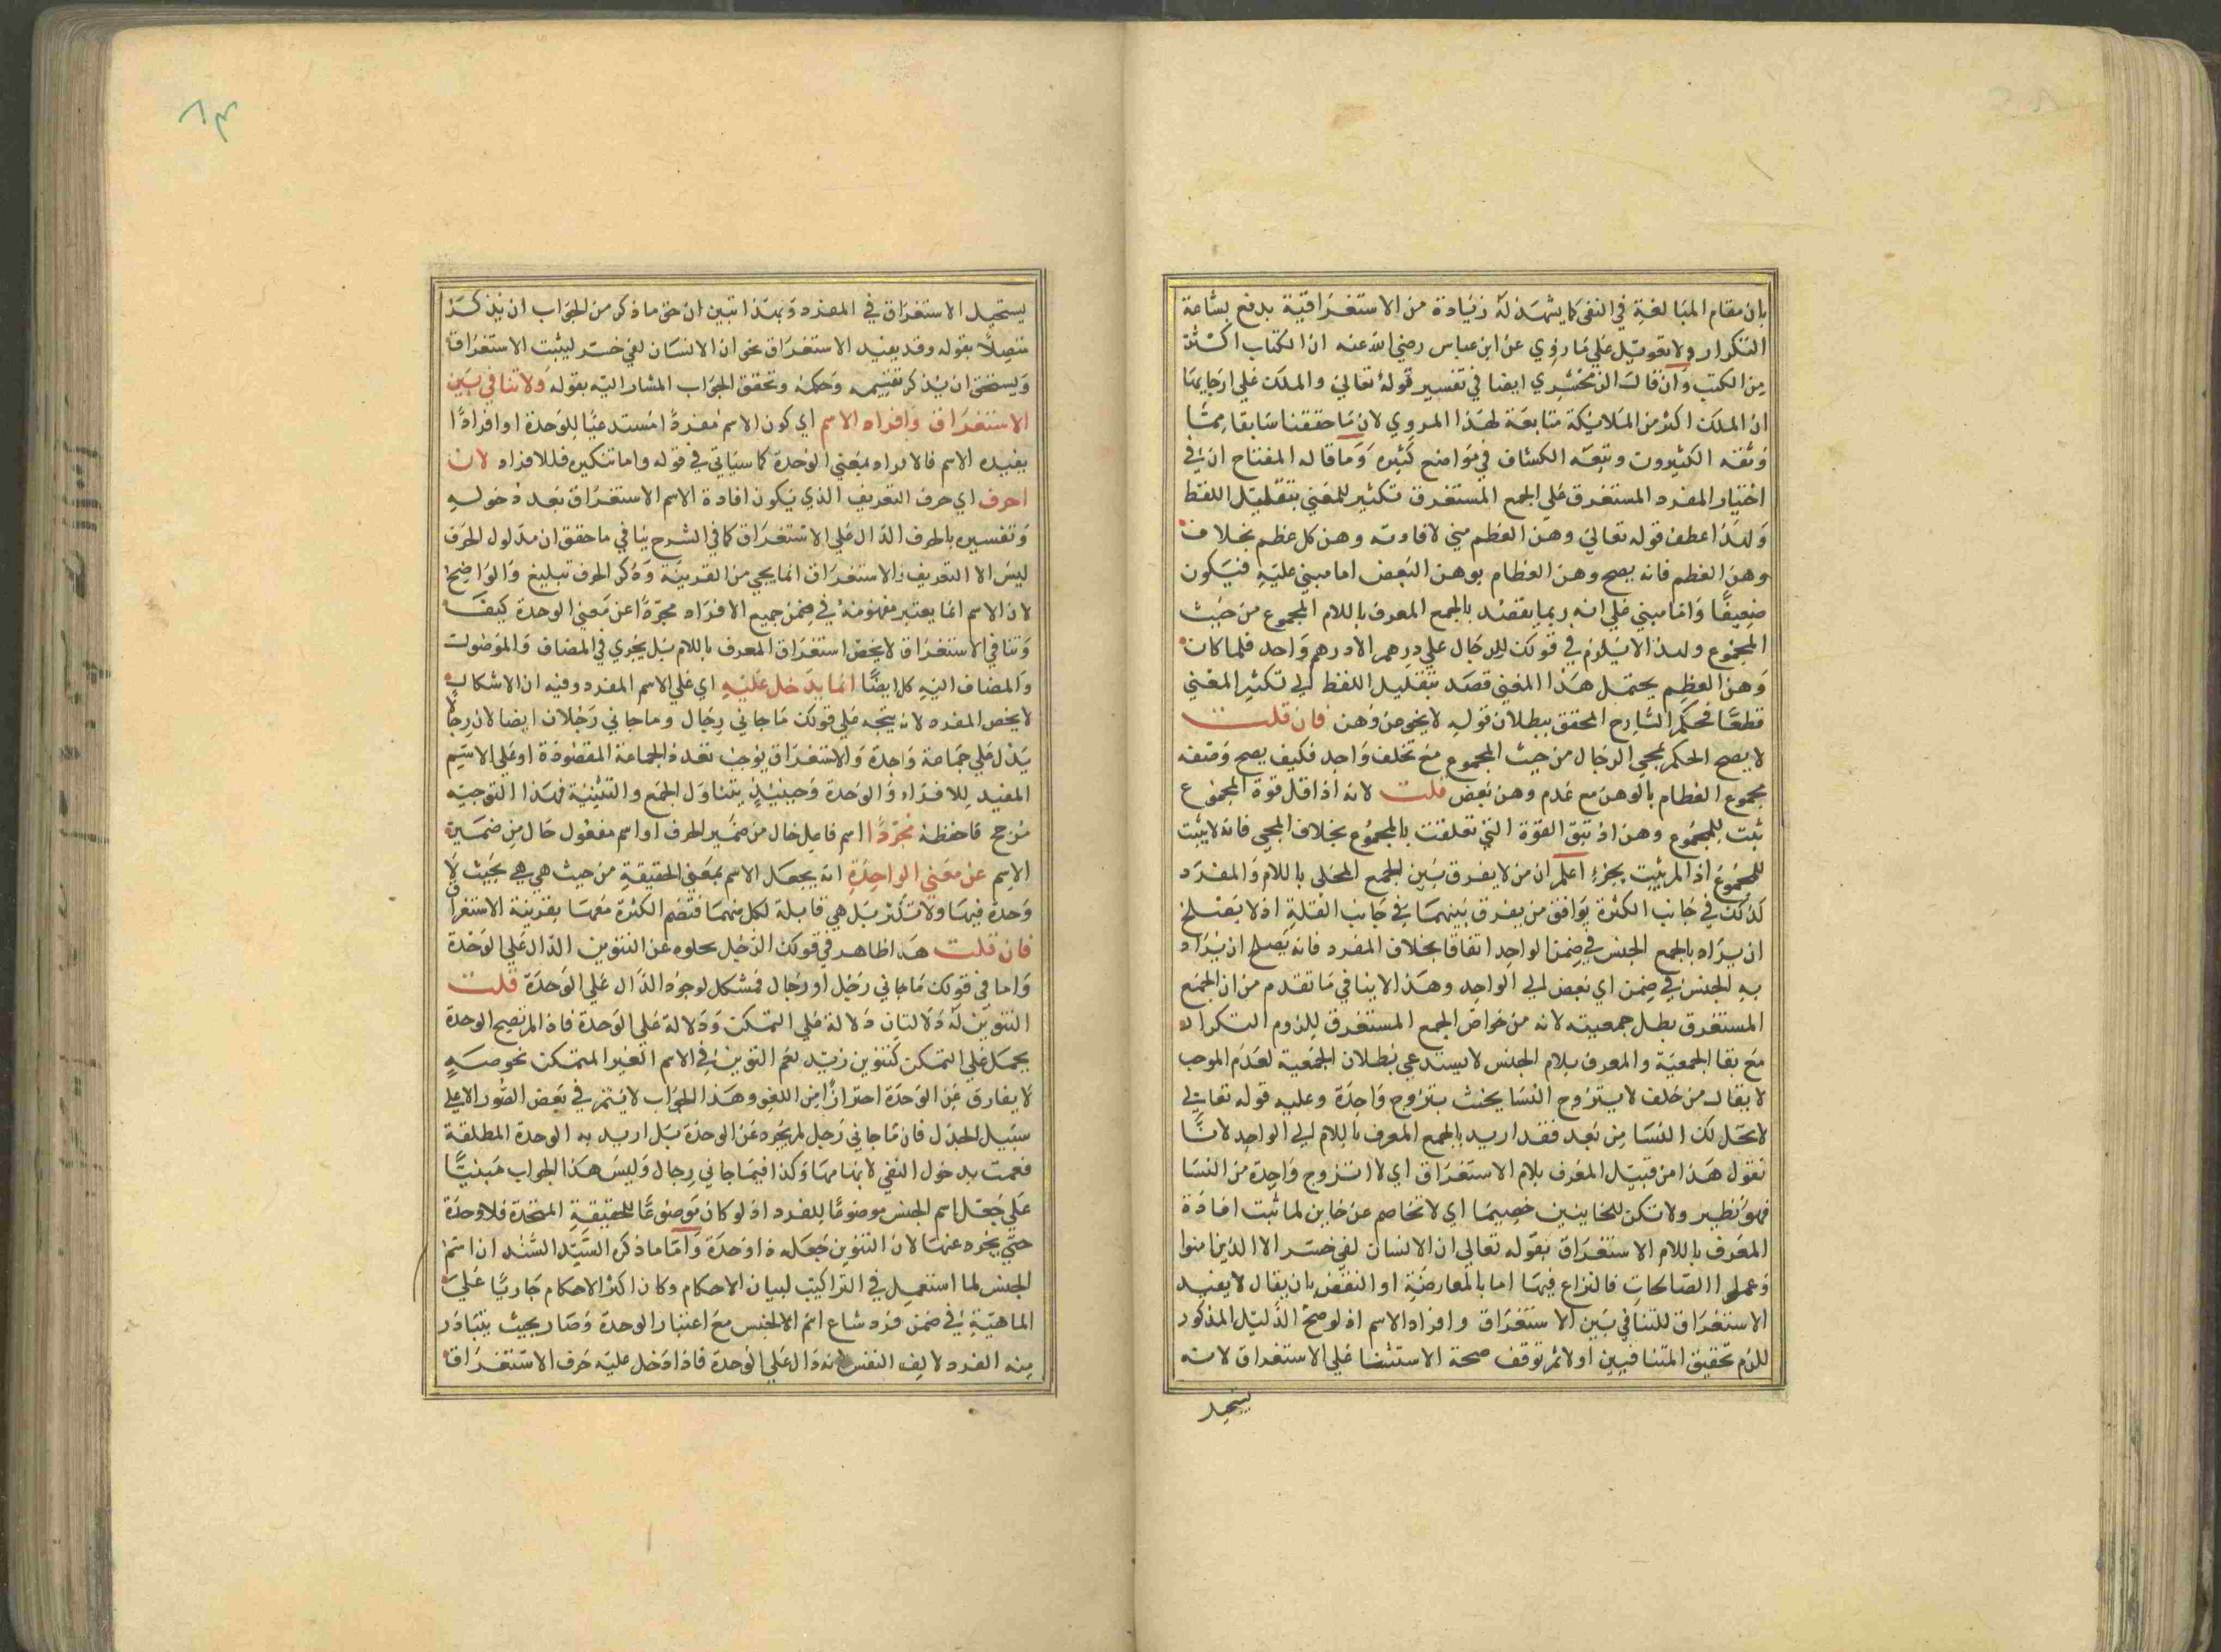 بان مقام المبالغة في النفي كما يشهد له زيادة من الاستغراقية يدفع بشاعة
التكرار ولا تعويل على ما روي عن ابن عباس رضي الله عنه ان الكتاب اكثر
من الكتب وان قال الزمخشري ايضا في تفسير قوله تعالى والملك على ارجايها
ان الملك اكثر من الملايكة متابعة لهذا المروي لان ما حققنا سابقا مما
وثقه الكثيرون وتبعه الكشاف في مواضع كثيرة وما قاله المفتاح ان في
اختيار المفرد المستغرق على الجمع المستغرق تكثير للمعنى بتقليل اللفظ
ولهذا عطف قوله تعالى وهن العظم مني لافادته وهن كل عظم بخلاف
وهن العظم فانه يصح وهن العظام بوهن البعض اما مبني عليه فيكون
ضعيفا واما مبني على انه ربما يقصد بالجمع المعرف باللام المجموع من حيث
المجموع ولهذا لا يلزم في قولك للرجال علي درهم الا درهم واحد فلما كان
وهن العظم يحتمل هذا المعنى قصد بتقليل اللفظ الى تكثير المعنى
قطعا فحكم الشارح المحقق ببطلان قوله لا يخلو عن وهن فان قلت
لا يصح الحكم بمجي الرجال من حيث المجموع مع تخلف واحد فكيف يصح وصفه
مجموع العظام بالوهن مع عدم وهن بعض قلت لانه اذا قل قوة المجموع
ثبت للمجموع وهن اذ تبق القوة التي تعلقت بالمجموع بخلاف المجي فانه لا يثبت
للمجموع اذ المريثبت بجزء اعلم ان من لا يفرق بين الجمع المحلى باللام والمفرد
كذلك في جانب الكثرة يوافق من يفرق بينهما في جانب القلة اذ لا يصلح
ان يراد بالجمع الجنس في ضمن الواحد اتفاقا بخلاف المفرد فانه يصلح ان يراد
به الجنس في ضمن اي بعض الى الواحد وهذا لا ينافي ما تقدم من ان الجمع
المستغرق بطل جمعيته لانه من خواص الجمع المستغرق للزوم التكرار
مع بقا الجمعية والمعرف بلام الجنس لا يستدعي بطلان الجمعية لعدم الموجب
لا يقال من حلف لا يتزوج النسا يحنث بتزوج واحدة وعليه قوله تعالى
لا يحل لك النسا من بعد فقد اريد بالجمع المعرف باللام الى الواحد لانا
نقول هذا من قبيل المعرف بلام الاستغراق اي لا اتزوج واحدة من النسا
فهو نظير ولا تكن للخاينين خصيما اي لا تخاصم عن خاين لما ثبت افادة
المعرف باللام الاستغراق بقوله تعالى ان الانسان لفي خسر الا الذين امنوا
وعملوا الصالحات فالنزاع فيها اما بالمعارضة او النقض بان يقال لا يفيد
الاستغراق للتنافي بين الاستغراق وافراد الاسم اذ لو صح الدليل المذكور
للزم تحقيق المتنافيين او لا ثم توقف صحة الاستثنا على الاستغراق لانه
يستحيل
٨٣
يستحيل الاستغراق في المفرد وبهذا تبين ان حق ما ذكر من الجواب ان يذكر
متصلا بقوله وقد يفيد الاستغراق نحو ان الانسان لفي خسر ليثبت الاستغراق
ويستحق ان يذكر تقسيمه وحكمه وتحقق الجواب المشار اليه بقوله ولا تنافي بين
الاستغراق وافراد الاسم اي كون الاسم مفردا مستدعيا للوحدة او افرادا
يفيده الاسم فالافراد بمعنى الوحدة كما سياتي في قوله واما تنكيره فللافراد لان
احرف اي حرف التعريف الذي يكون افادة الاسم الاستغراق بعد دخوله
وتفسيره بالحرف الدال على الاستغراق كما في الشرح ينافي ما حقق ان مدلول الحرف
ليس الا التعريف والاستغراق انما يجي من القرينة وذكر الحرف تبليغ والواضح
لان الاسم انما يعتبر مفهومه في ضمن جميع الافراد مجردا عن معنى الوحدة كيف
وتنافي الاستغراق لا يخص استغراق المعرف باللام بل يجري في المضاف والموصول
والمضاف اليه كل ايضا انما يدخل عليه اي على الاسم المفرد وفيه ان الاشكال
لا يخص المفرد لانه يتجه على قولك ما جاني رجال وما جاني رجلان ايضا لان رجالا
يدل على جماعة واحدة والاستغراق يوجب تعدد الجماعة المقصودة او على الاسم
المفيد للافراد والوحدة وحينيذ يتناول الجمع والتثنية فهذا التوجيه
مرجح فاحفظه مجردا اسم فاعل حال من ضمير الحرف او اسم مفعول حال من ضمير
الاسم عن معنى الواحدة انه يجعل الاسم بمعنى الحقيقة من حيث هي هي بحيث لا
وحدة فيها ولا تكثر بل هي قابلة لكل منهما فتضم الكثرة معها بقرينة الاستغراق
فان قلت هذا ظاهر في قولك الرجل بحلوه عن التنوين الدال على الوحدة
واما في قولك ما جاني رجل او رجال فمشكل لوجود الدال على الوحدة قلت
التنوين له دلالتان دلالة على التمكن ودلالة على الوحدة فاذا لم تصح الوحدة
يحمل على التمكن كتنوين زيد نعم التنوين في الاسم الغير المتمكن نحو صه
لا يفارق عن الوحدة احترازا من اللغو وهذا الجواب لا يتم في بعض الصور الا على
سبيل الجدل فان ما جاني رجل لم يجرد عن الوحدة بل اريد به الوحدة المطلقة
فعمت بدخول النفي لابهامها وكذا فيما جاني رجال وليس هذا الجواب مبنيا
على جعل اسم الجنس موضوعا للفرد اذ لو كان موضوعا للحقيقة المتحدة فلا وحدة
حتى يجرد عنها لان التنوين جعله ذا وحدة واما ما ذكره السيد السند ان اسم
الجنس لما استعمل في التراكيب لبيان الاحكام وكان اكثر الاحكام جاريا على
الماهية في ضمن فرد شاع اسم الجنس مع اعتبار الوحدة وصار بحيث يتبادر
منه الفرد لالف النفس لانه دال على الوحدة فاذا دخل عليه حرف الاستغراق